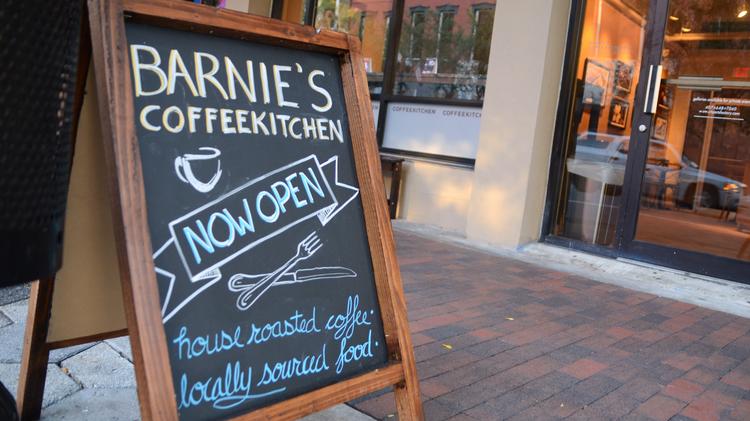 BARNIE'S
COFFEEKITCHEN
NOW OPEN
house roasted coffee.
locally sourced food.
COFFEEKITCHEN COFFEEKITC